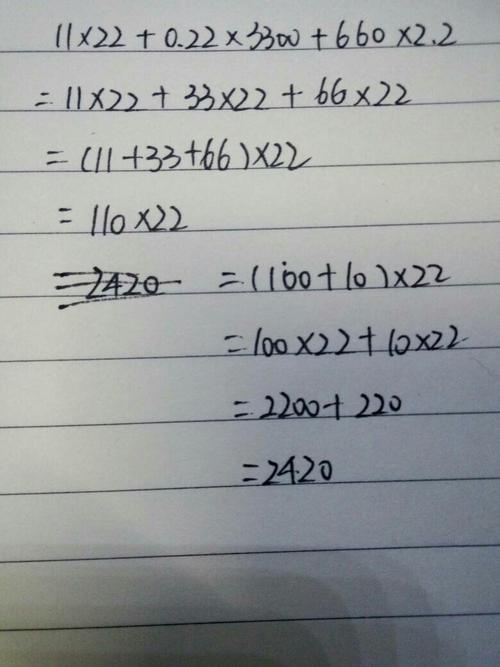 11×22+0.22×3300+660×2.2
=11×22+33×22+66×22
=(11+33+66)×22
=110×22
=2420 =(100+10)×22
=100×22+10×22
=2200+220
=2420